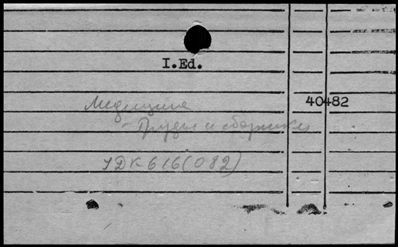 I.Ed.
Медицина
40482
- Труды и сборники
УДК 616(082)